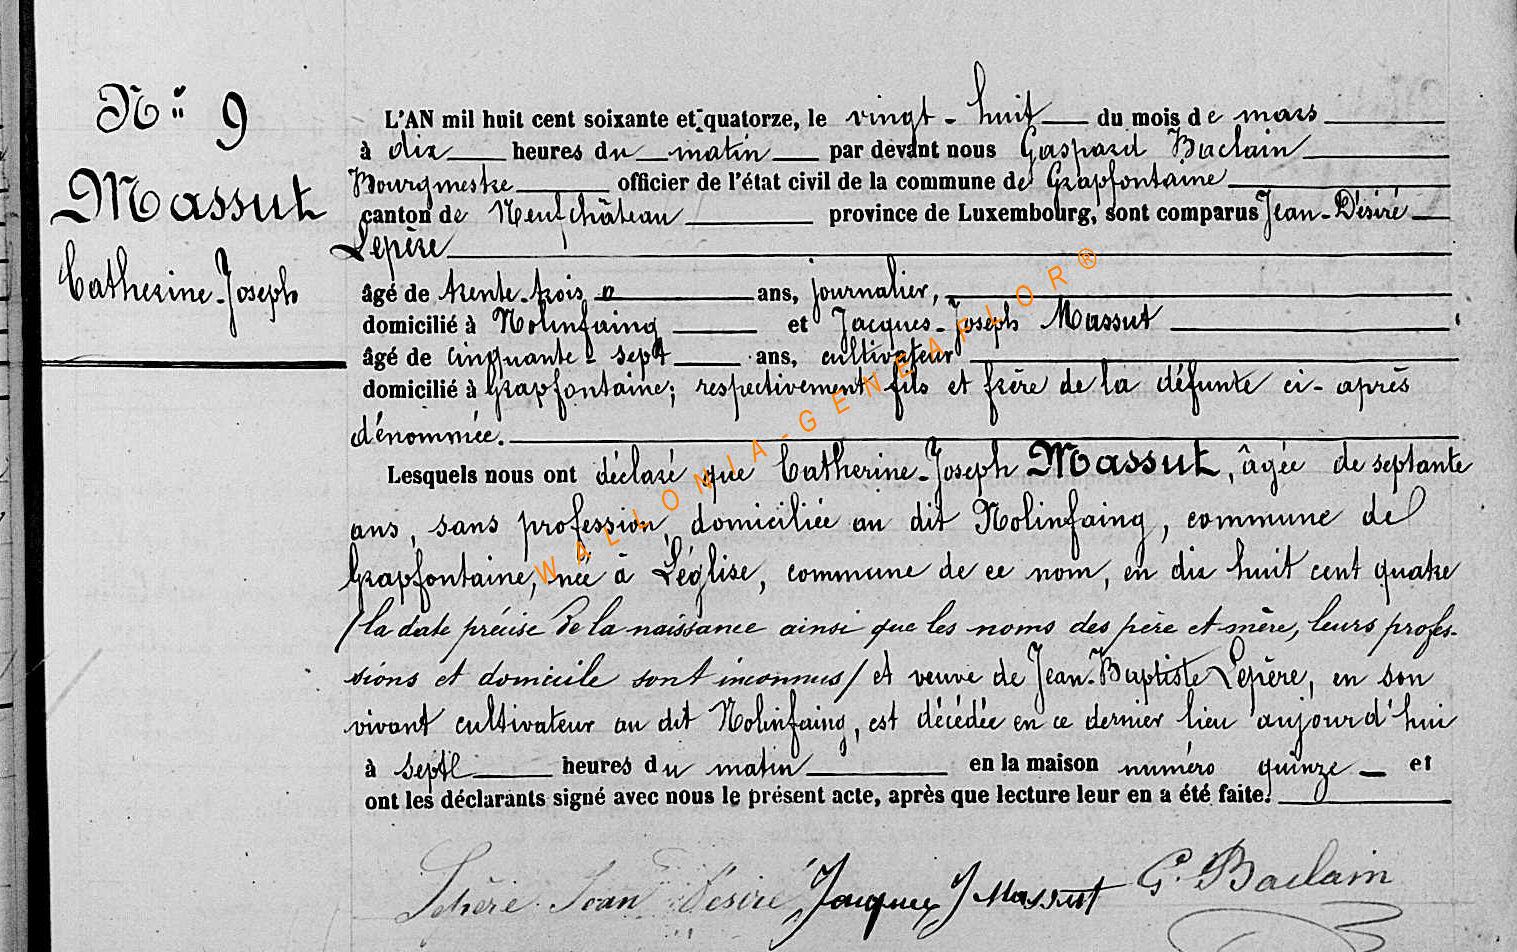 N° 9
Massut
Catherine-Joseph
L'AN mil huit cent soixante et quatorze, le vingt-huit du mois de mars
à dix heures du matin par devant nous Gaspard Baclain
Bourgmestre officier de l'état civil de la commune de Grapfontaine
canton de Neufchâteau province de Luxembourg, sont comparus Jean-Désiré
Lepère
âgé de trente-trois ans, journalier,
domicilié à Nolinfaing et Jacques-Joseph Massut
âgé de cinquante-sept ans, cultivateur
domicilié à Grapfontaine; respectivement fils et frère de la défunte ci-après
dénommée.
Lesquels nous ont déclaré que Catherine-Joseph Massut, âgée de septante
ans, sans profession, domiciliée au dit Nolinfaing, commune de
Grapfontaine, née à Léglise, commune de ce nom, en dix huit cent quatre
/la date précise de la naissance ainsi que les noms des père et mère, leurs profes-
sions et domicile sont inconnus/ et veuve de Jean-Baptiste Lepère, en son
vivant cultivateur au dit Nolinfaing, est décédée en ce dernier lieu aujourd'hui
à sept heures du matin en la maison numéro quinze et
ont les déclarants signé avec nous le présent acte, après que lecture leur en a été faite.
Lepère Jean Désiré Jacques J Massut G. Baclain
WALLONIA-GENEAFLOR®